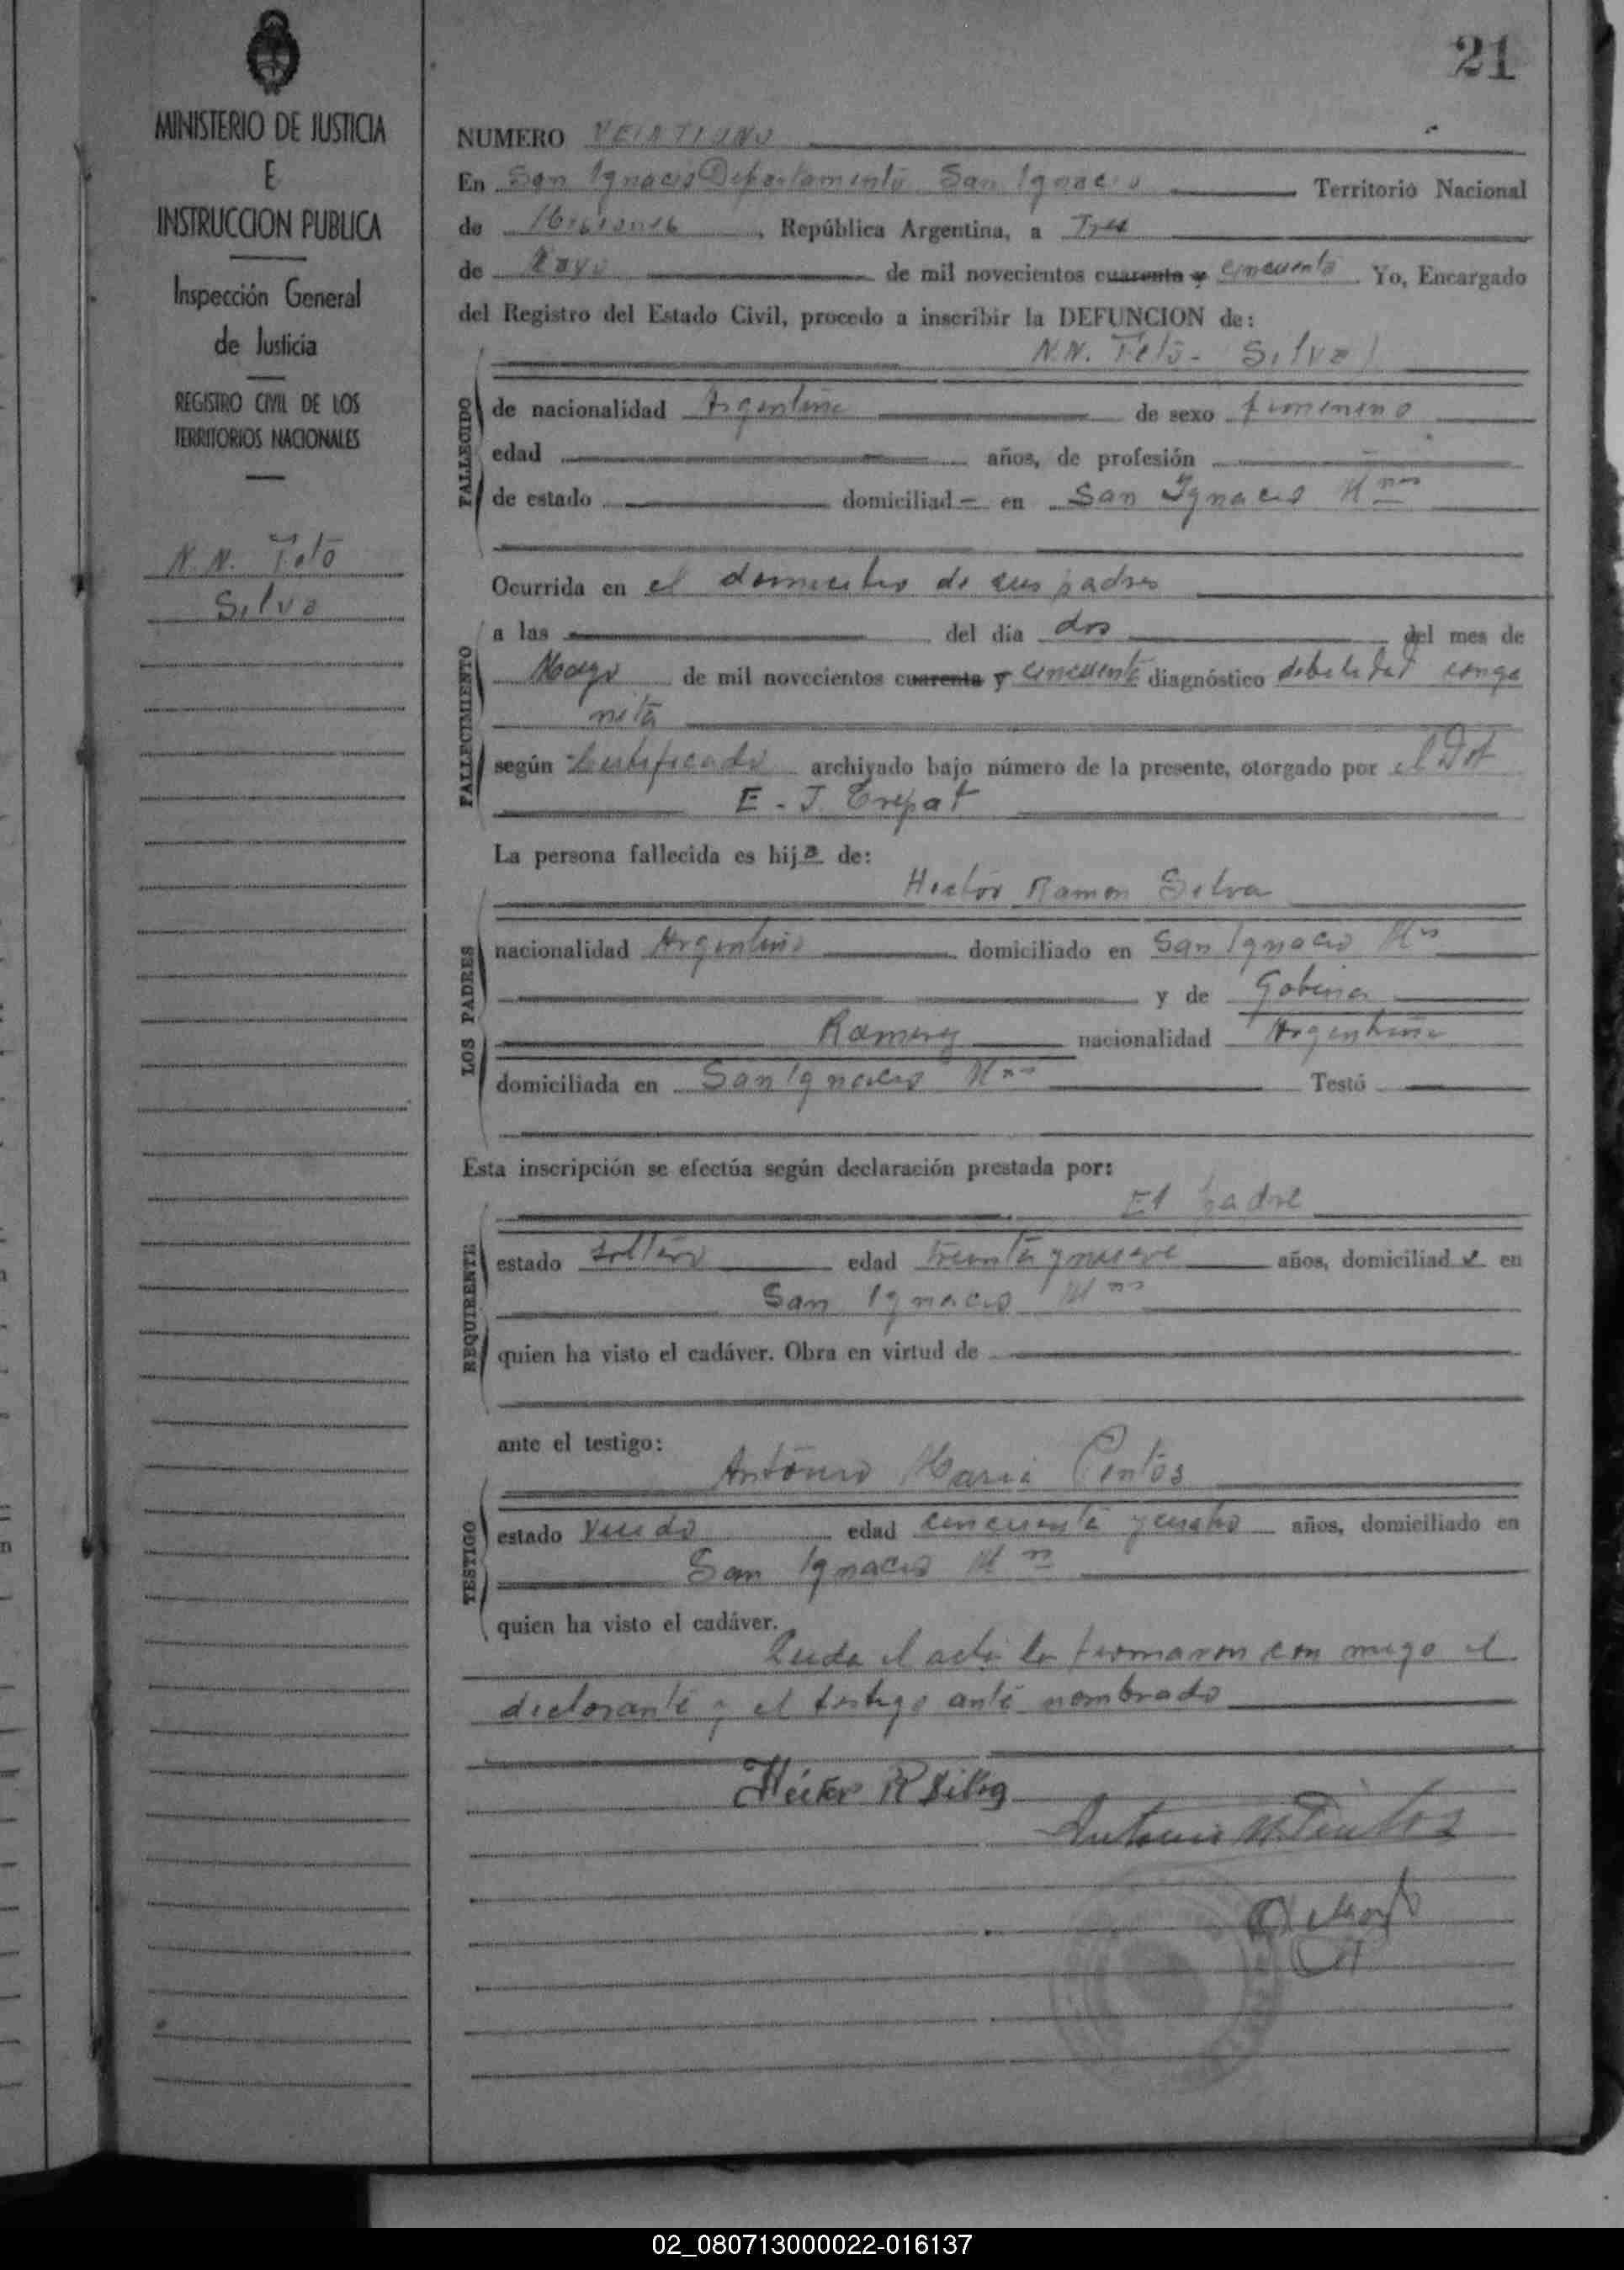 21
MINISTERIO DE JUSTICIA
E
INSTRUCCION PUBLICA
Inspección General
de Justicia
REGISTRO CIVIL DE LOS
TERRITORIOS NACIONALES
N.N. Feto
Silva
NUMERO VEINTIUNO
En San Ignacio Departamento San Ignacio Territorio Nacional
de Misiones, República Argentina, a Tres
de Mayo de mil novecientos cuarenta y cincuenta Yo, Encargado
del Registro del Estado Civil, procedo a inscribir la DEFUNCION de:
N.N. Feto - Silva
FALLECIDO
de nacionalidad Argentina de sexo femenino
edad años, de profesión
de estado domiciliad en San Ignacio Mnes
Ocurrida en el domicilio de sus padres
FALLECIMIENTO
a las del día dos del mes de
Mayo de mil novecientos cuarenta y cincuenta diagnóstico debilidad conge
nita
según Certificado archivado bajo número de la presente, otorgado por el Dr
E. J. Trepat
La persona fallecida es hija de:
LOS PADRES
Hector Ramon Silva
nacionalidad Argentino domiciliado en San Ignacio Mns
y de Gabina
nacionalidad Argentina
domiciliada en San Ignacio Mnes Testó
Esta inscripción se efectúa según declaración prestada por:
REQUIRENTE
El padre
estado soltero edad treinta y nueve años, domiciliado en
San Ignacio Mnes
quien ha visto el cadáver. Obra en virtud de
ante el testigo:
TESTIGO
Antonio Maria Pintos
estado Viudo edad cincuenta y cuatro años, domiciliado en
San Ignacio Mn
quien ha visto el cadáver.
Leida el acta la firmaron con migo el
declarante y el testigo ante nombrado
Héctor R Silva
Antonio M Pintos
02_080713000022-016137